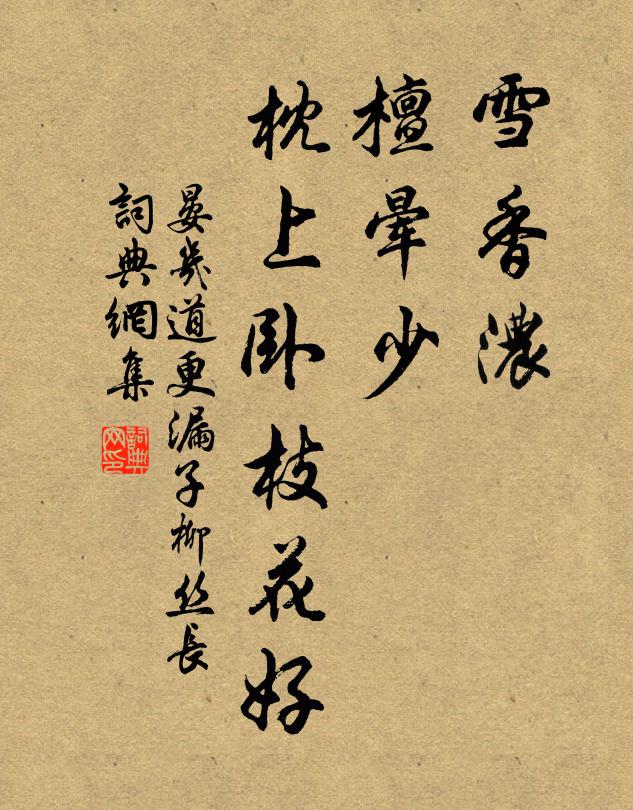 雪香濃
檀暈少
枕上卧枝花好
晏幾道更漏子柳丝長
詞典網集
詞典網印